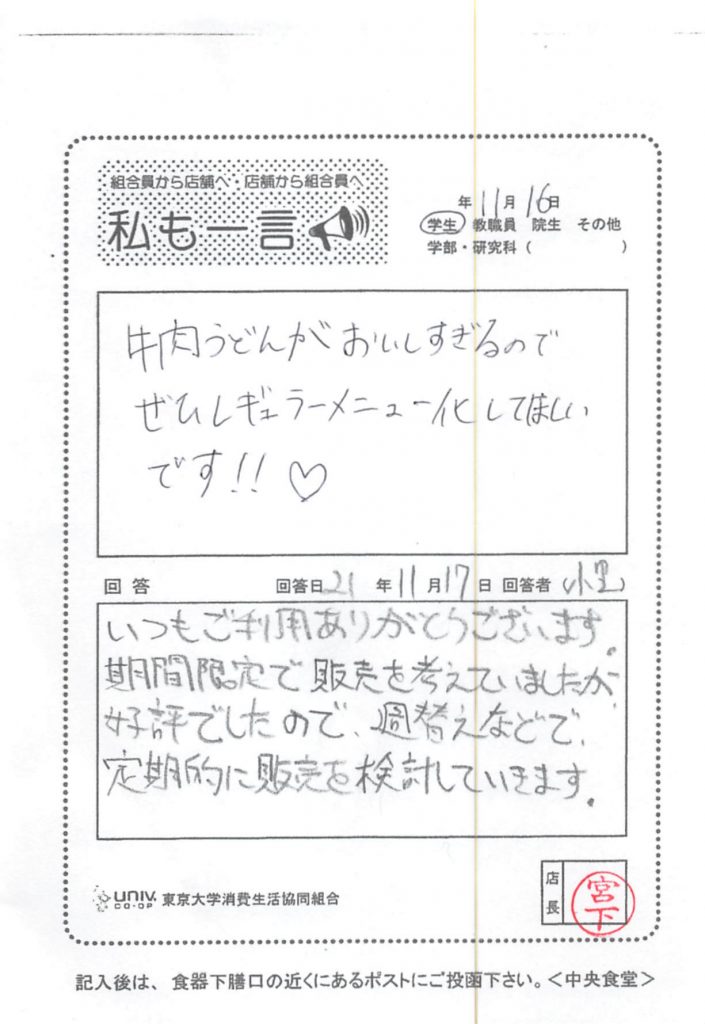 組合員から店舗へ・店舗から組合員へ
私も一言
年 11月 16日
学生 教職員 院生 その他
学部・研究科 ( )
牛肉うどんが おいしすぎるので
ぜひレギュラーメニュー化してほしい
です!! ♡
回答 回答日 21 年 11 月 17 日 回答者 (小里)
いつもご利用ありがとうございます。
期間限定で販売を考えていましたが、
好評でしたので、週替えなどで、
定期的に販売を検討していきます。
UNIV. CO-OP 東京大学消費生活協同組合
店長 宮下
記入後は、食器下膳口の近くにあるポストにご投函下さい。<中央食堂>